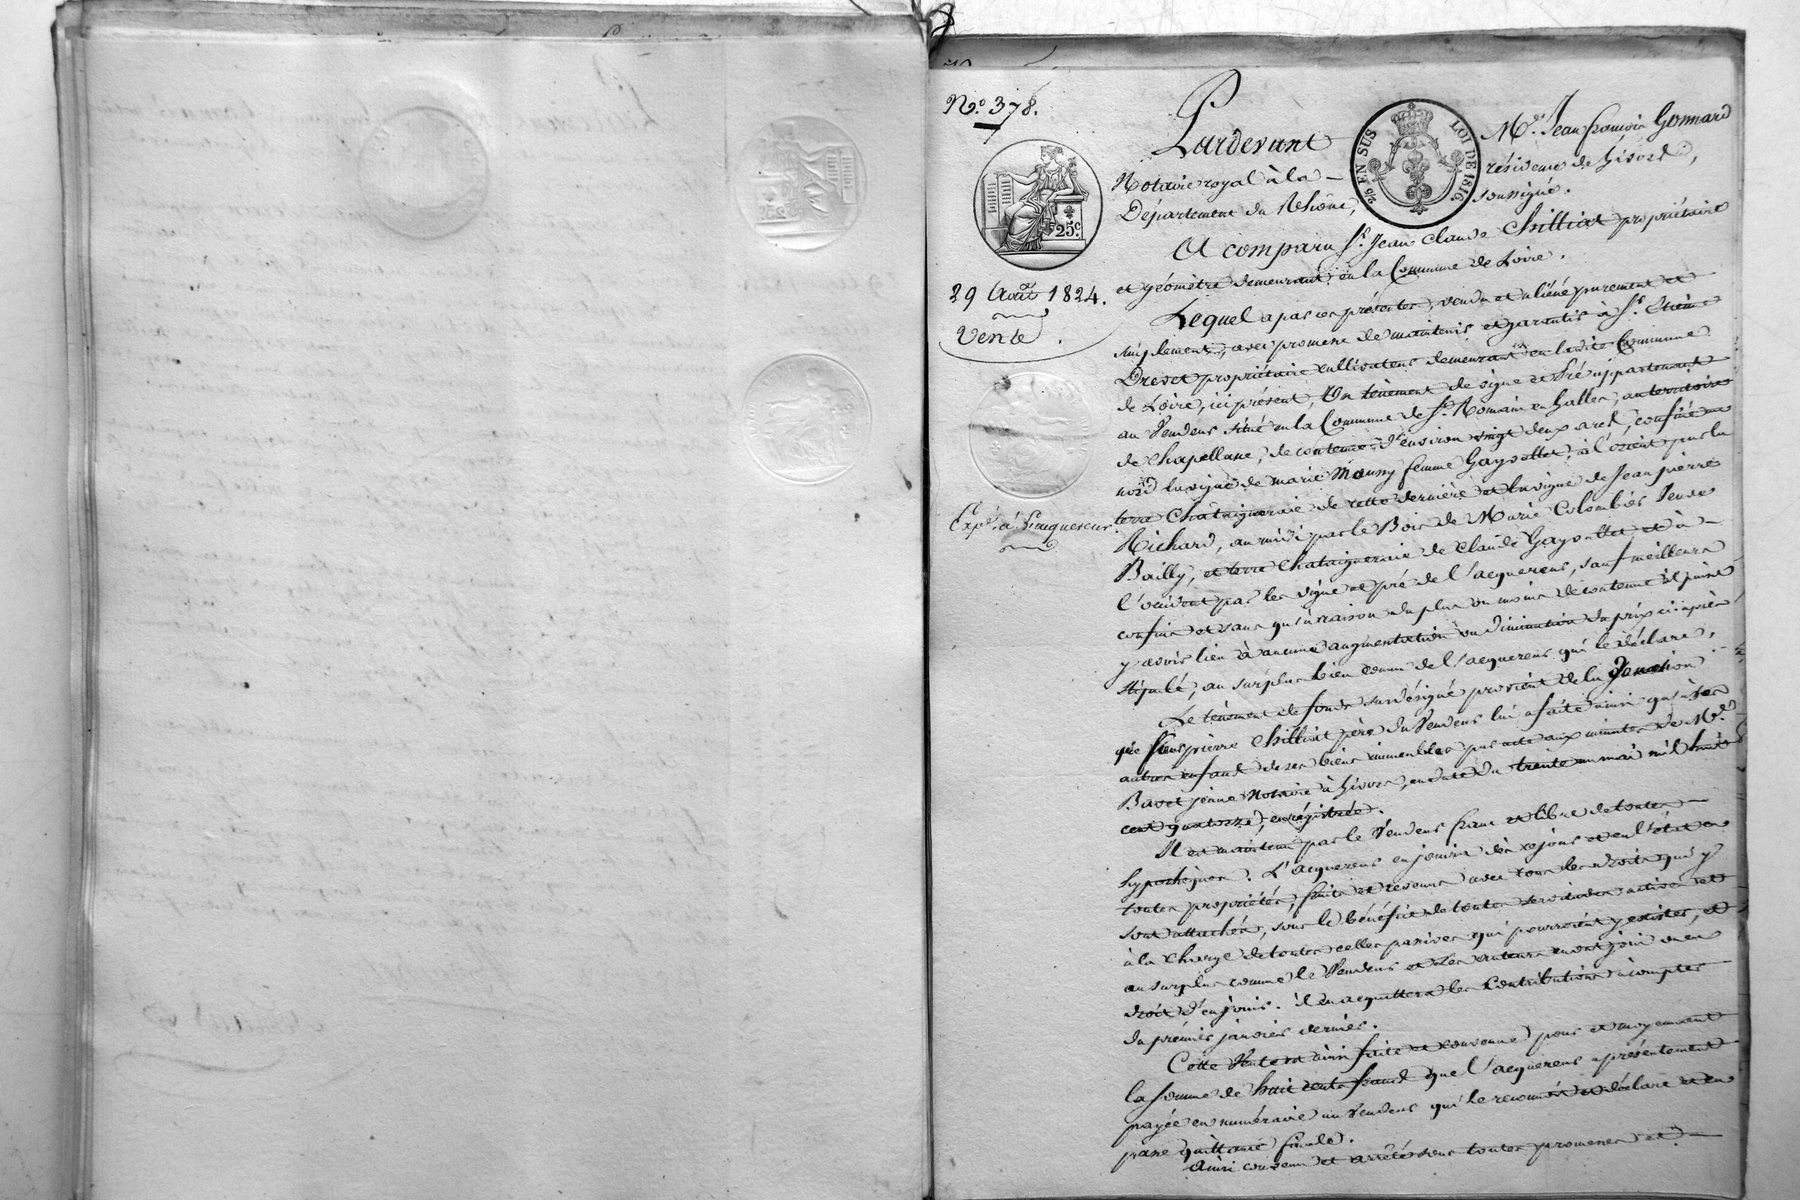 N.º 378.
Pardevant Mᵉ. Jean françois Gonnard
Notaire royal à la résidence de Givors,
Département du Rhône, soussigné.
2/10 EN SUS LOI DE 1816
25.c
29 Août 1824.
Vente.
Expé. à l'acquereur.
A comparu Sʳ. Jean Claude Chilliat propriétaire
et géomètre demeurant en la Commune de Loire.
Lequel a par ces présentes, vendu et aliéné purement et
simplement, avec promesse de maintenir et garantir à Sʳ. Etiènne
Drevet propriétaire cultivateur demeurant en ladite Commune
de Loire, ici présent, Un tènement de vigne et Pré appartenant
au Vendeur situé en la Commune de Sᵗ. Romain en Galles, au territoire
de Chapellane, de contenue d'environ vingt deux ares, confiné au
nord la vigne de marie Mouny femme Gayouttet, à l'orient par la
terre Chataigneraie de cette dernière et la vigne de Jean pierre
Richard, au midi par le Bois de Marie Colombier Veuve
Bailly, et terre Chataigneraie de Claude Gayouttet et à
l'occident par les vigne et pré de l'acquereur, sauf meilleurs
confins et sans qu'à raison du plus ou moins de contenue il puisse
y avoir lieu à aucune augmentation ou diminution du prix ci-après
stipulé, au surplus bien connu de l'acquereur qui le déclare,
Le tènement de fonds susdésigné provient de la Donation
que Sieur pierre Chilliat père du Vendeur lui a faite ainsi qu'à ses
autres enfans de ses biens immeubles par acte aux minutes de Mᵉ.
Bavet jeune Notaire à Givors, en date du trente un mai mil huit
cent quatorze, enrégistrée.
Il est maintenu par le Vendeur franc et libre de toutes
hypothèques. L'acquereur en jouira dès ce jour et en l'état en
toutes propriétés, fruits et revenus avec tous les droits qui y
sont attachés, sous le bénéfice de toutes servitudes actives et
à la charge de toutes celles passives qui pourroient y exister, et
au surplus comme le Vendeur et ses auteurs en ont joui ou eu
droit d'en jouir. il en acquittera les Contributions à compter
du prémier janvier dernier.
Cette Vente est ainsi faite et convenue pour et moyennant
la somme de huit cents francs que l'acquereur a présentement
payée en numéraire au Vendeur qui le reconnoit et déclare et en
passe quittance finale.
Ainsi convenu et arrêté sous toutes promesses et